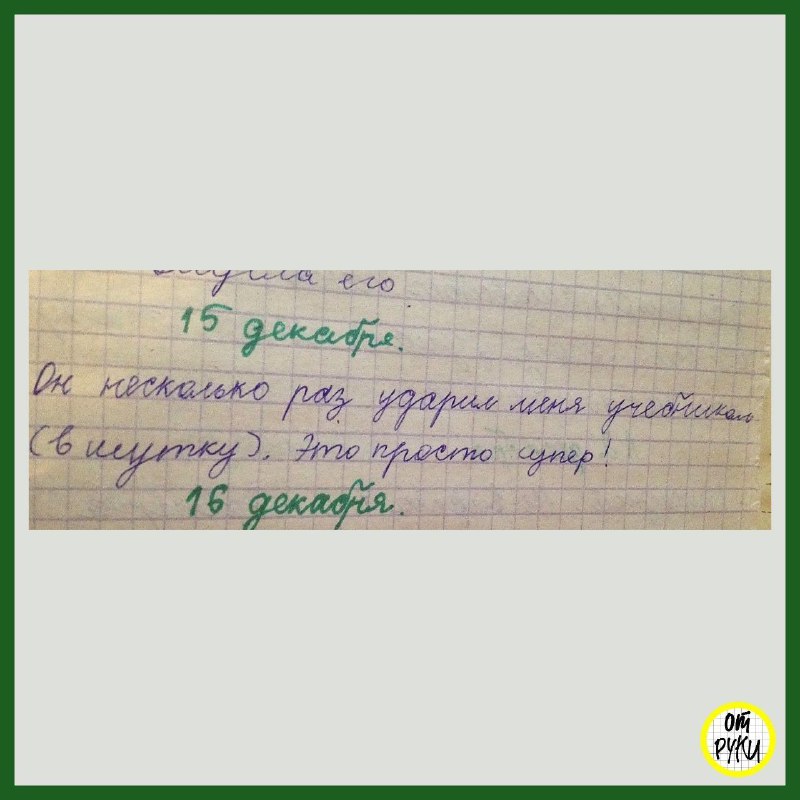 его
15 декабря.
Он несколько раз ударил меня учебником
(в шутку). Это просто супер!
16 декабря.
от
руки